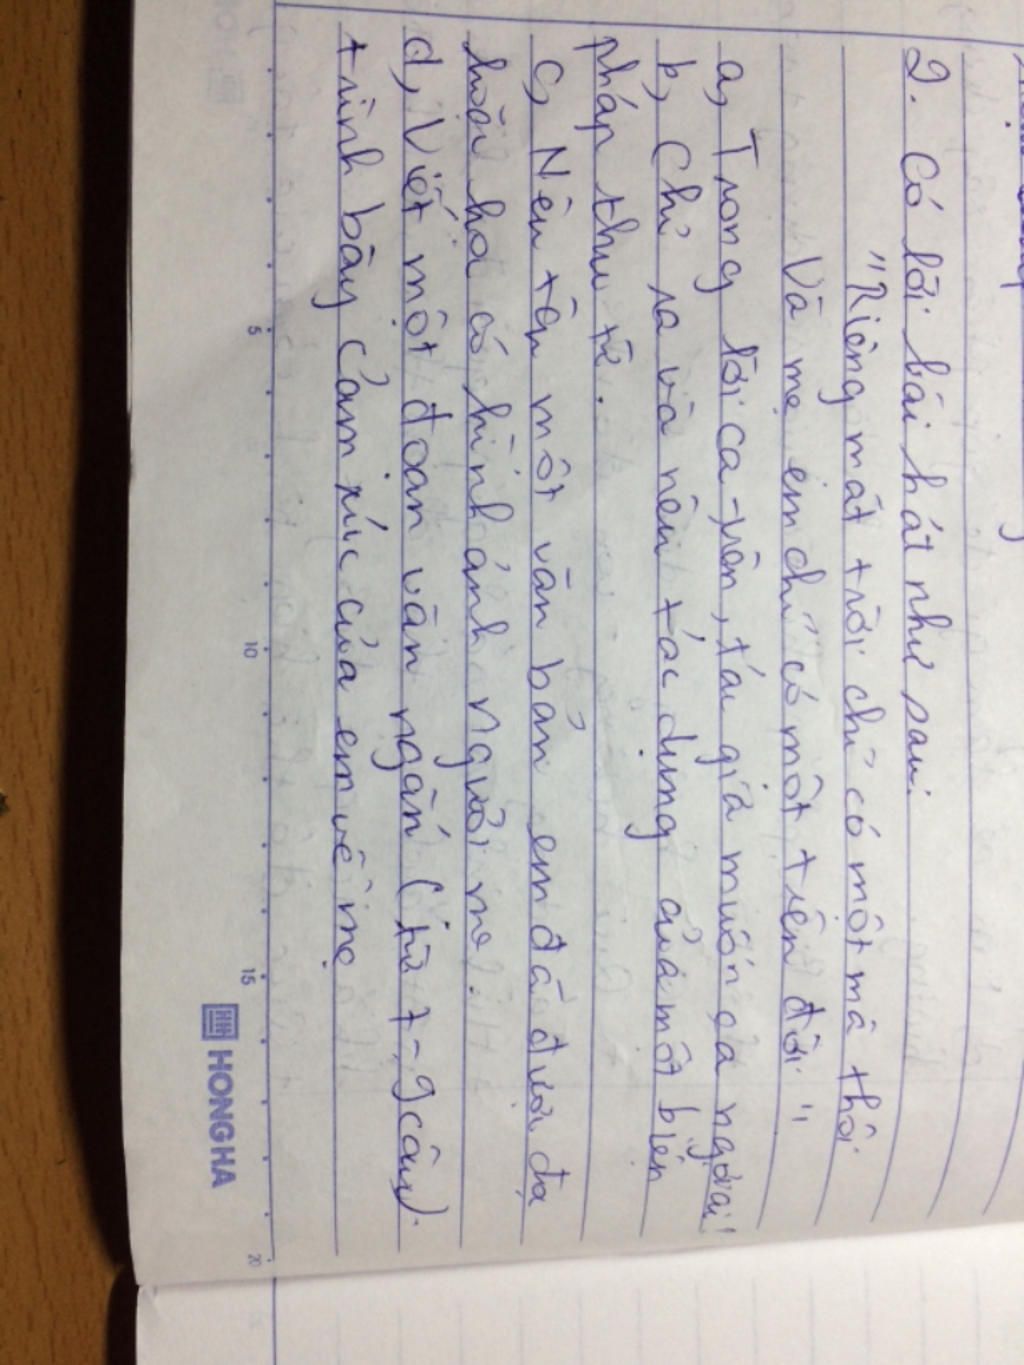 2. Có lời bài hát như sau:
"Riêng mặt trời chỉ có một mà thôi
Và mẹ em chỉ có một trên đời"
a, Trong lời ca trên, tác giả muốn ca ngợi ai?
b, Chỉ ra và nêu tác dụng của một biện
pháp tu từ.
c, Nêu tên một văn bản em đã được đọ
hoặc có hình ảnh người mẹ.
d, Viết một đoạn văn ngắn (từ 7-9 câu)
trình bày cảm xúc của em về mẹ
5
10
15
20
HONG HA